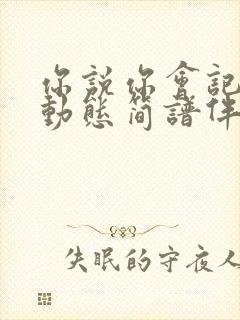 你說你會記
動態简譜伴
失眠的守夜人